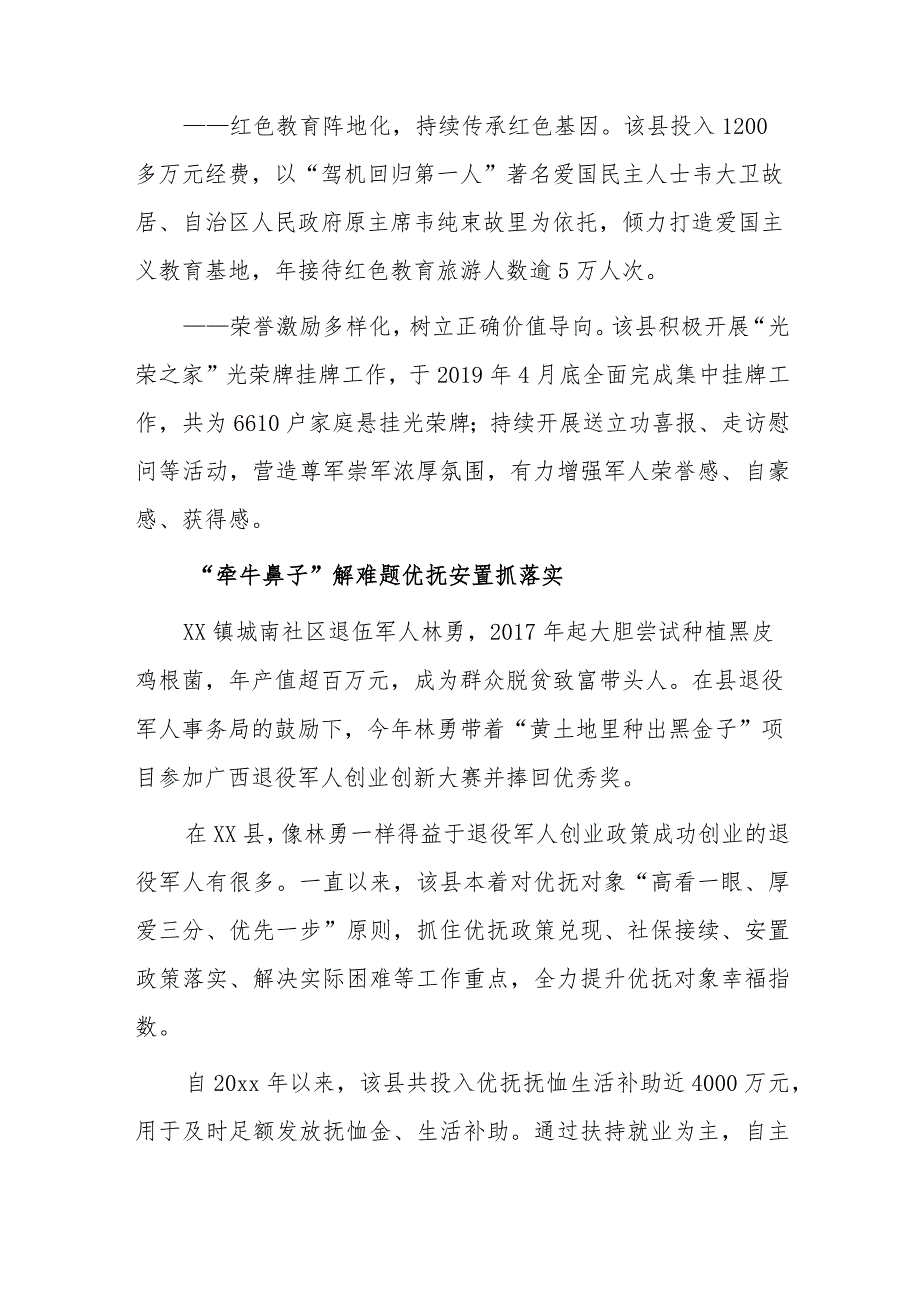 ——红色教育阵地化，持续传承红色基因。该县投入 1200
多万元经费，以“驾机回归第一人”著名爱国民主人士韦大卫故
居、自治区人民政府原主席韦纯束故里为依托，倾力打造爱国主
义教育基地，年接待红色教育旅游人数逾 5 万人次。
——荣誉激励多样化，树立正确价值导向。该县积极开展“光
荣之家”光荣牌挂牌工作，于 2019 年 4 月底全面完成集中挂牌工
作，共为 6610 户家庭悬挂光荣牌；持续开展送立功喜报、走访慰
问等活动，营造尊军崇军浓厚氛围，有力增强军人荣誉感、自豪
感、获得感。
“牵牛鼻子”解难题优抚安置抓落实
XX 镇城南社区退伍军人林勇，2017 年起大胆尝试种植黑皮
鸡根菌，年产值超百万元，成为群众脱贫致富带头人。在县退役
军人事务局的鼓励下，今年林勇带着“黄土地里种出黑金子”项
目参加广西退役军人创业创新大赛并捧回优秀奖。
在 XX 县，像林勇一样得益于退役军人创业政策成功创业的退
役军人有很多。一直以来，该县本着对优抚对象“高看一眼、厚
爱三分、优先一步”原则，抓住优抚政策兑现、社保接续、安置
政策落实、解决实际困难等工作重点，全力提升优抚对象幸福指
数。
自 20xx 年以来，该县共投入优抚抚恤生活补助近 4000 万元，
用于及时足额发放抚恤金、生活补助。通过扶持就业为主，自主